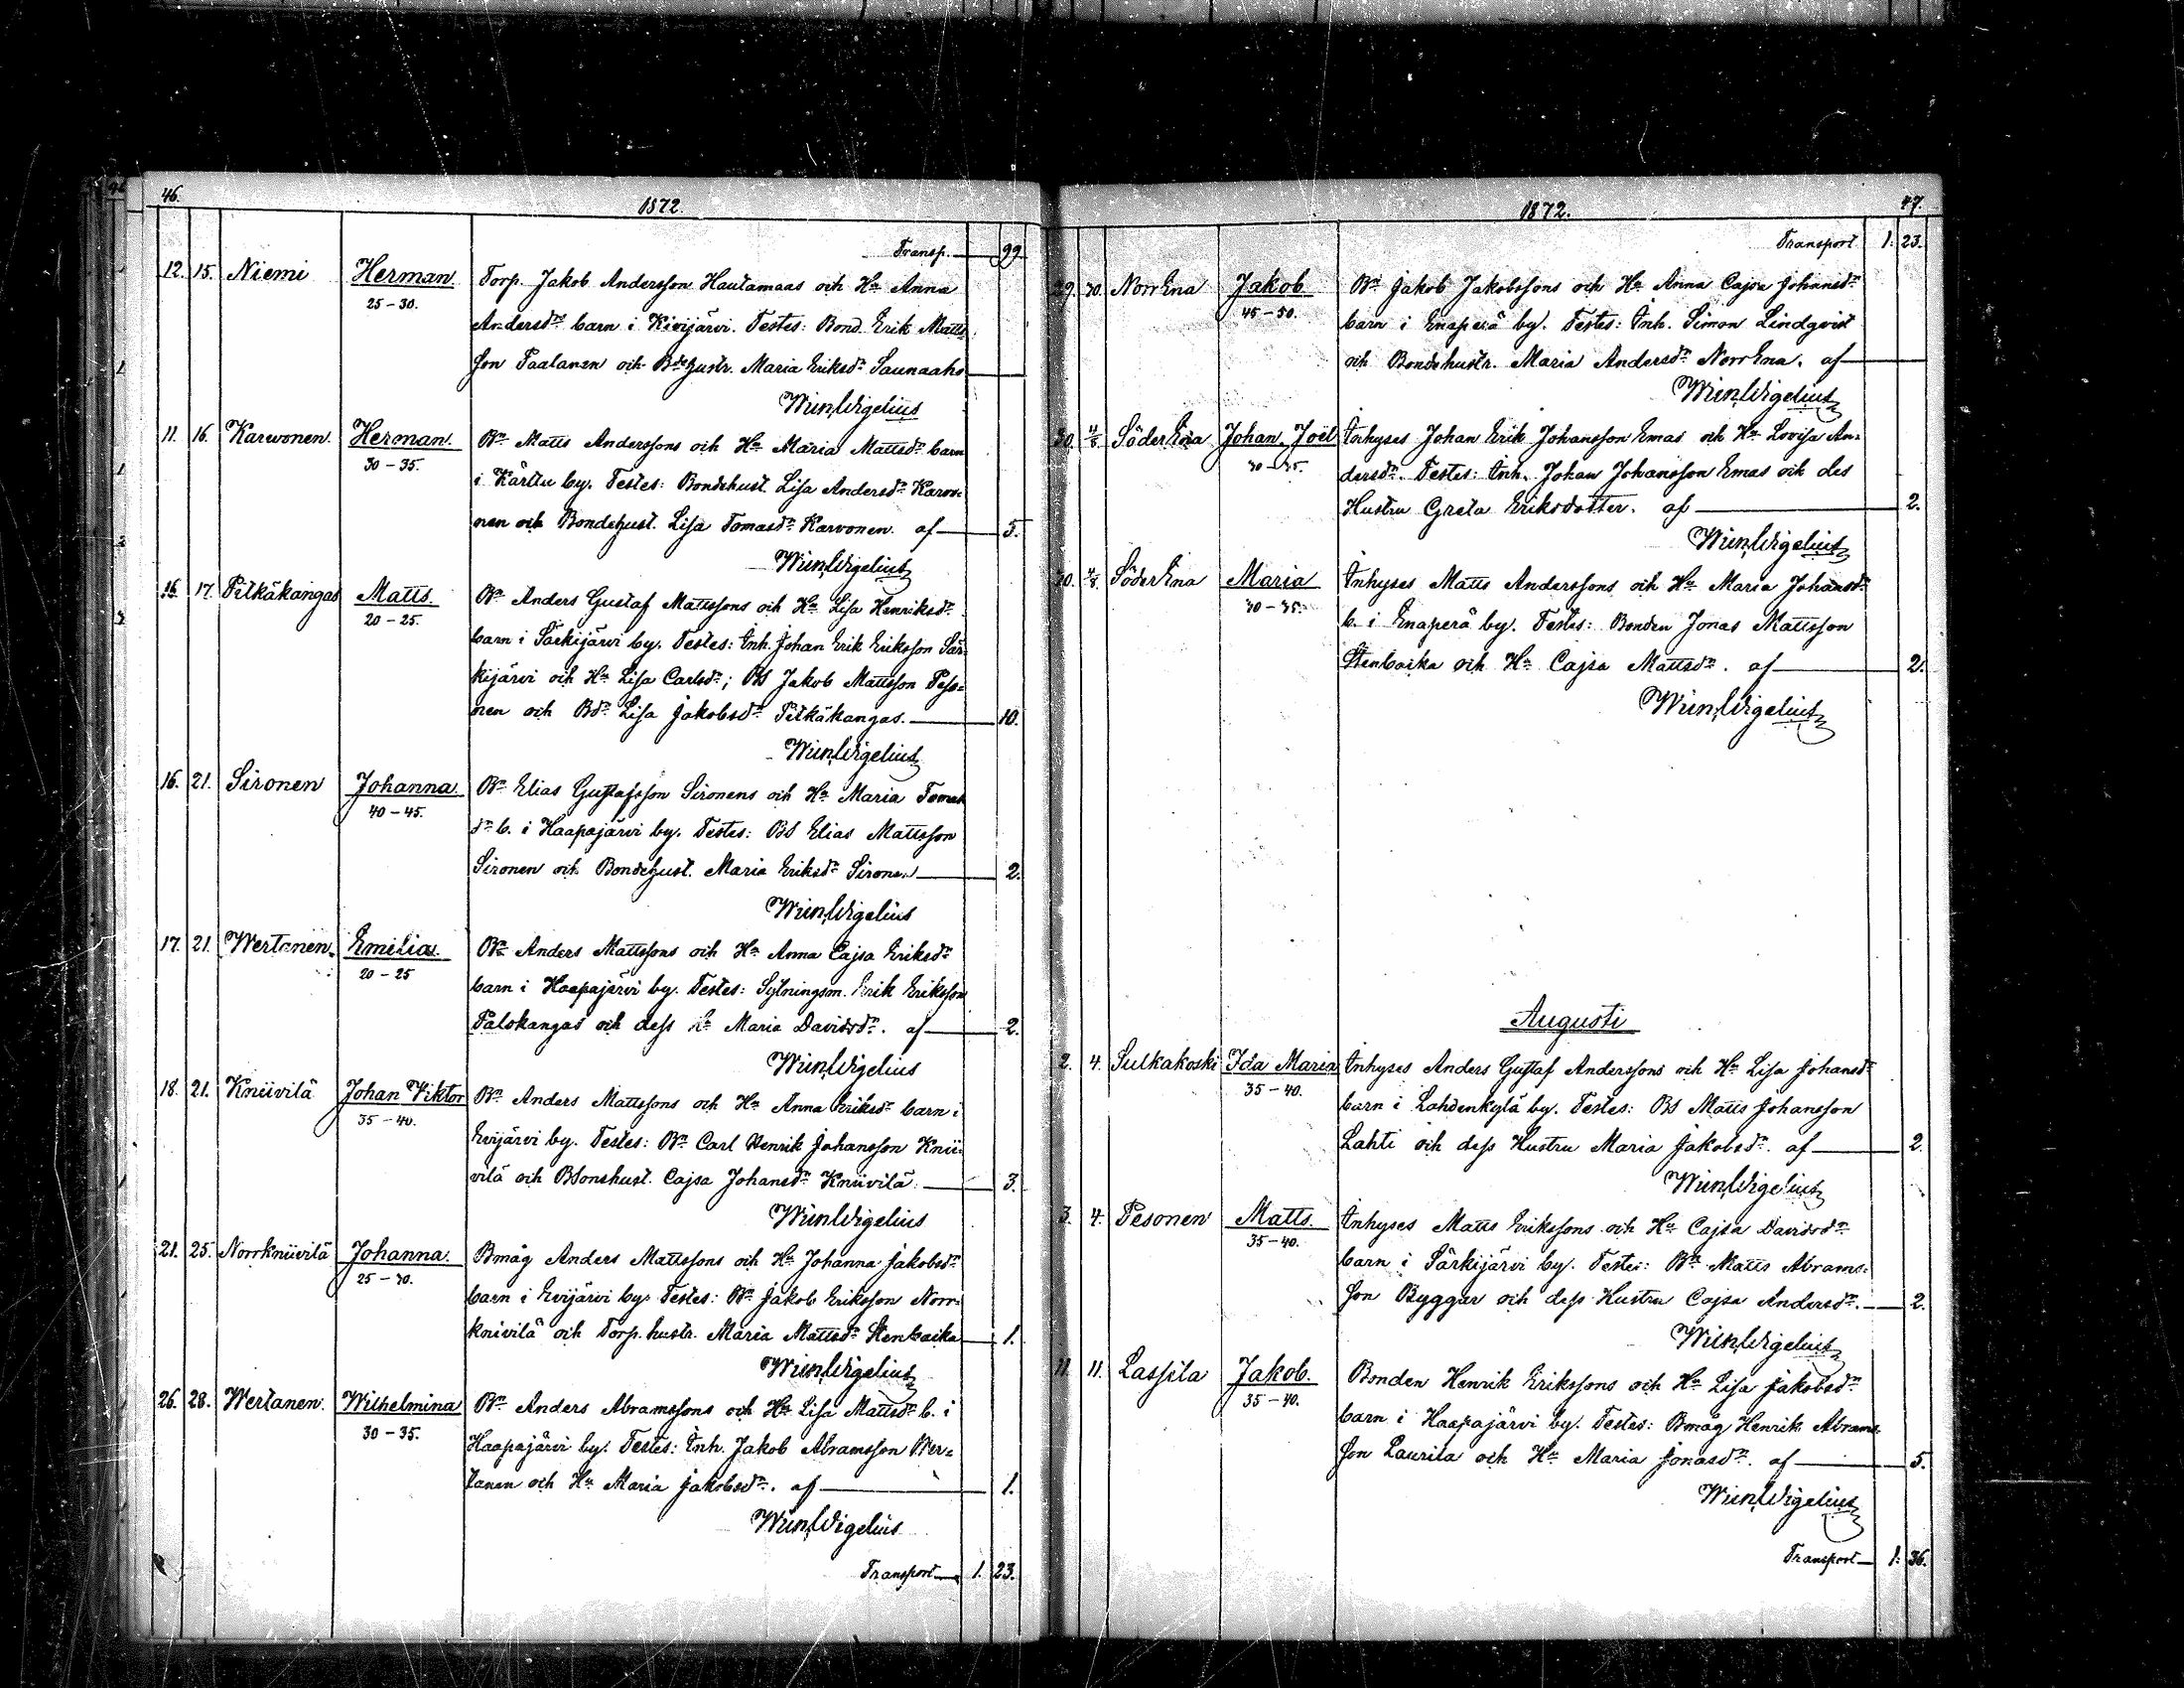 46.
1872.
Transp. 99
12. 15. Niemi Herman. Torp. Jakob Andersson Hautamaas och Hu Anna
25-30. Andersdr barn i Kivijärvi. Testes: Bond. Erik Matts-
son Paalanen och Bdehustr. Maria Eriksdr Saunaaho
Wilh. Wigelius
11. 16. Karvonen. Herman. Bn Matts Anderssons och Hu Maria Mattsdr barn
30-35. i Kärttu by. Testes: Bondehust. Lisa Andersdr Karvo-
nen och Bondehust. Lisa Tomasdr Karvonen. af 5.
Wilh. Wigelius
16. 17. Pitkäkangas Matts. Bn Anders Gustaf Mattssons och Hu Lisa Henriksdr
20-25. barn i Särkijärvi by. Testes: Inh. Johan Erik Eriksson Sär-
kijärvi och Hu Lisa Carlsdr; BS Jakob Mattsson Peso-
nen och Bdr Lisa Jakobsdr Pitkäkangas. 10.
Wilh. Wigelius
16. 21. Sironen Johanna. Bn Elias Gustafsson Sironens och Hu Maria Tomas
40-45. dr b. i Haapajärvi by. Testes: BS Elias Mattsson
Sironen och Bondehust. Maria Eriksdr Sironen 2.
Wilh. Wigelius
17. 21. Wertanen. Emilia. Bn Anders Mattssons och Hu Anna Cajsa Eriksdr
20-25 barn i Haapajärvi by. Testes: Sytningsm. Erik Eriksson
Palokangas och dess Hu Maria Davidsdr. af 2.
Wilh. Wigelius
18. 21. Kniivilä Johan Viktor Bn Anders Mattssons och Hu Anna Eriksdr barn i
35-40. Evijärvi by. Testes: Bn Carl Henrik Johansson Knii-
vilä och BSonshust. Cajsa Johansdr Kniivilä. 3.
Wilh. Wigelius
21. 25. Norrkniivilä Johanna. Bmåg Anders Mattssons och Hu Johanna Jakobsdr
25-30. barn i Evijärvi by. Testes: Bn Jakob Eriksson Norr-
knivilä och Torp. hustr. Maria Mattsdr Stenbacka 1.
Wilh. Wigelius
26. 28. Wertanen. Wilhelmina Bn Anders Abramssons och Hu Lisa Mattsdr b. i
30-35. Haapajärvi by. Testes: Inh. Jakob Abramsson Wer-
tanen och Hu Maria Jakobsdr. af 1.
Wilh. Wigelius
Transport 1. 23.
1872. 47.
Transport 1. 23.
29. 30. NorrEna Jakob Bn Jakob Jakobssons och Hu Anna Cajsa Johansdr
45-50. barn i Enaperä by. Testes: Inh. Simon Lindqvist
och Bondehustr. Maria Andersdr NorrEna. af
Wilh. Wigelius
30. 4/8 SöderEna Johan Joël Inhyses Johan Erik Johansson Emas och Hu Lovisa An-
30-35. dersdr. Testes: Inh. Johan Johansson Emas och des
Hustru Greta Eriksdotter. af 2.
Wilh. Wigelius
30. 4/8 SöderEna Maria Inhyses Matts Anderssons och Hu Maria Johansdr
30-35. b. i Enaperä by. Testes: Bonden Jonas Mattsson
Stenbacka och Hu Cajsa Mattsdr. af 2.
Wilh. Wigelius
Augusti
2. 4. Sulkakoski Ida Maria Inhyses Anders Gustaf Anderssons och Hu Lisa Johansdr
35-40. barn i Lahdenkylä by. Testes: BS Matts Johansson
Lahti och dess Hustru Maria Jakobsdr. af 2.
Wilh. Wigelius
3. 4. Pesonen Matts. Inhyses Matts Erikssons och Hu Cajsa Davidsdr
35-40. barn i Särkijärvi by. Testes: Bn Matts Abrams-
son Byggar och dess Hustru Cajsa Andersdr. 2.
Wilh. Wigelius
11. 11. Lassila Jakob. Bonden Henrik Erikssons och Hu Lisa Jakobsdr
35-40. barn i Haapajärvi by. Testes: Bmåg Henrik Abrams-
son Laurila och Hu Maria Jonasdr. af 5.
Wilh. Wigelius
Transport 1. 36.